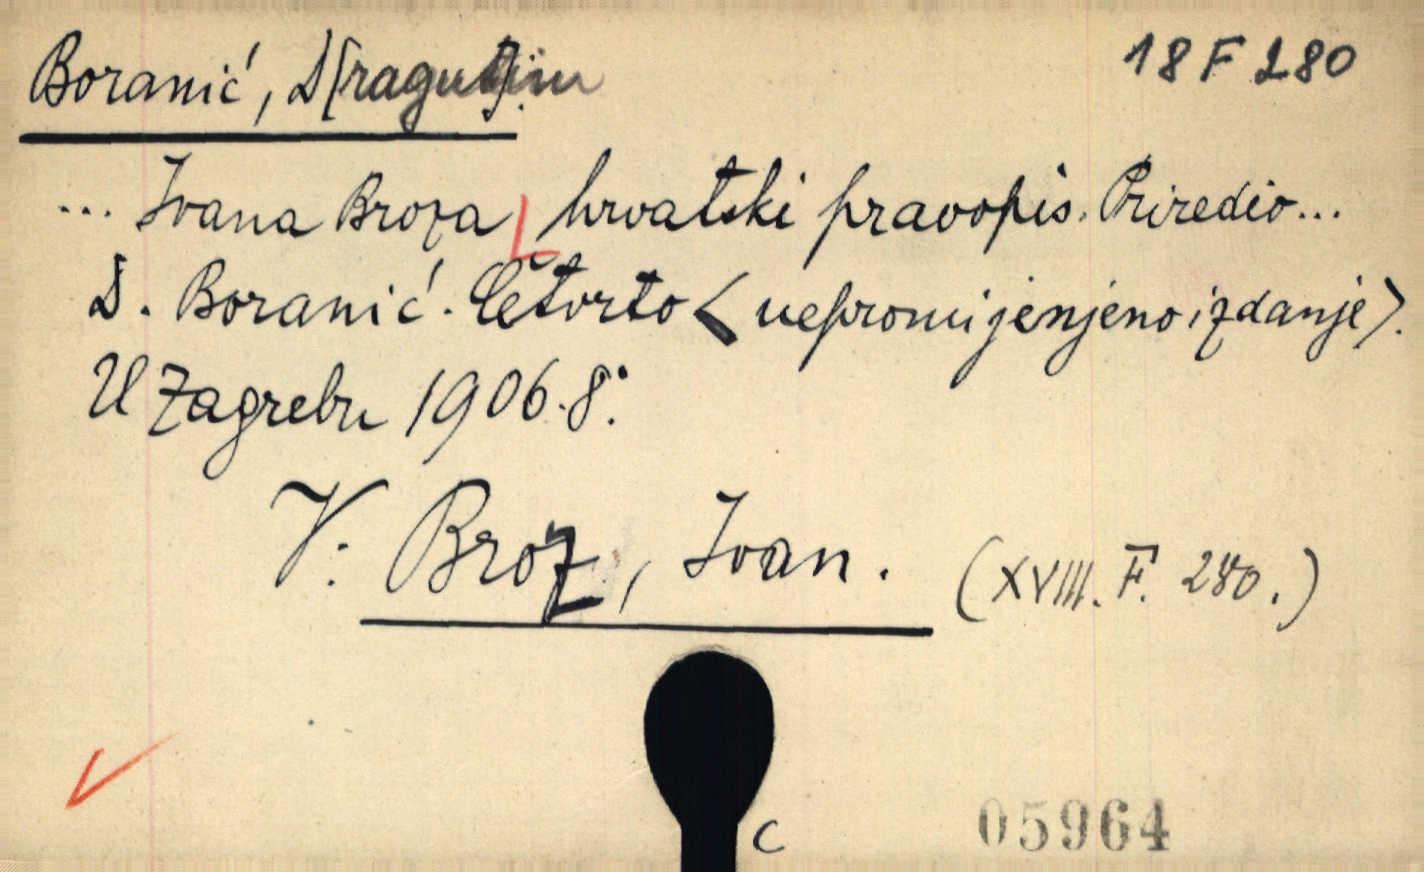 18 F 280
Boranić, D[ragutin].
... Ivana Broza hrvatski pravopis. Priredio...
D. Boranić. Četvrto < nepromijenjeno izdanje >.
U Zagrebu 1906. 8°.
V: Broz, Ivan. (XVIII. F. 280.)
C
05964